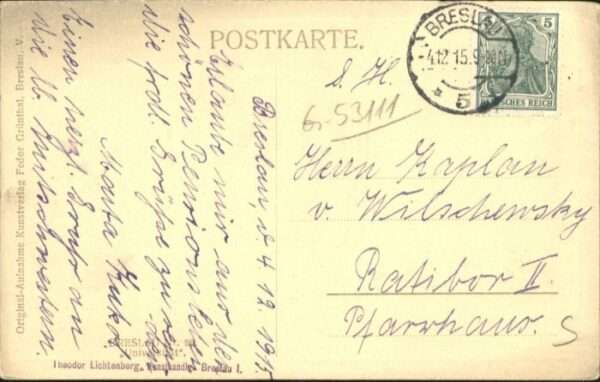 POSTKARTE.
BRESLAU
-4.12.15.9
* 5
5
DEUTSCHES REICH
S. H.
53111
Herrn Kaplan
v. Wilschewsky
Ratibor II.
Pfarrhaus.
S
Breslau, d 4. 12. 1915
Erlaube mir aus der
schönen Pensions
die frdl. Grüße zu
Marta
Einen herzl. Gruß an
die lb. Mitschwestern.
Original-Aufnahme Kunstverlag Fedor Grünthal, Breslau, V.
BRESLAU
Universität
Theodor Lichtenberg, Kunsthandlg. Breslau I.